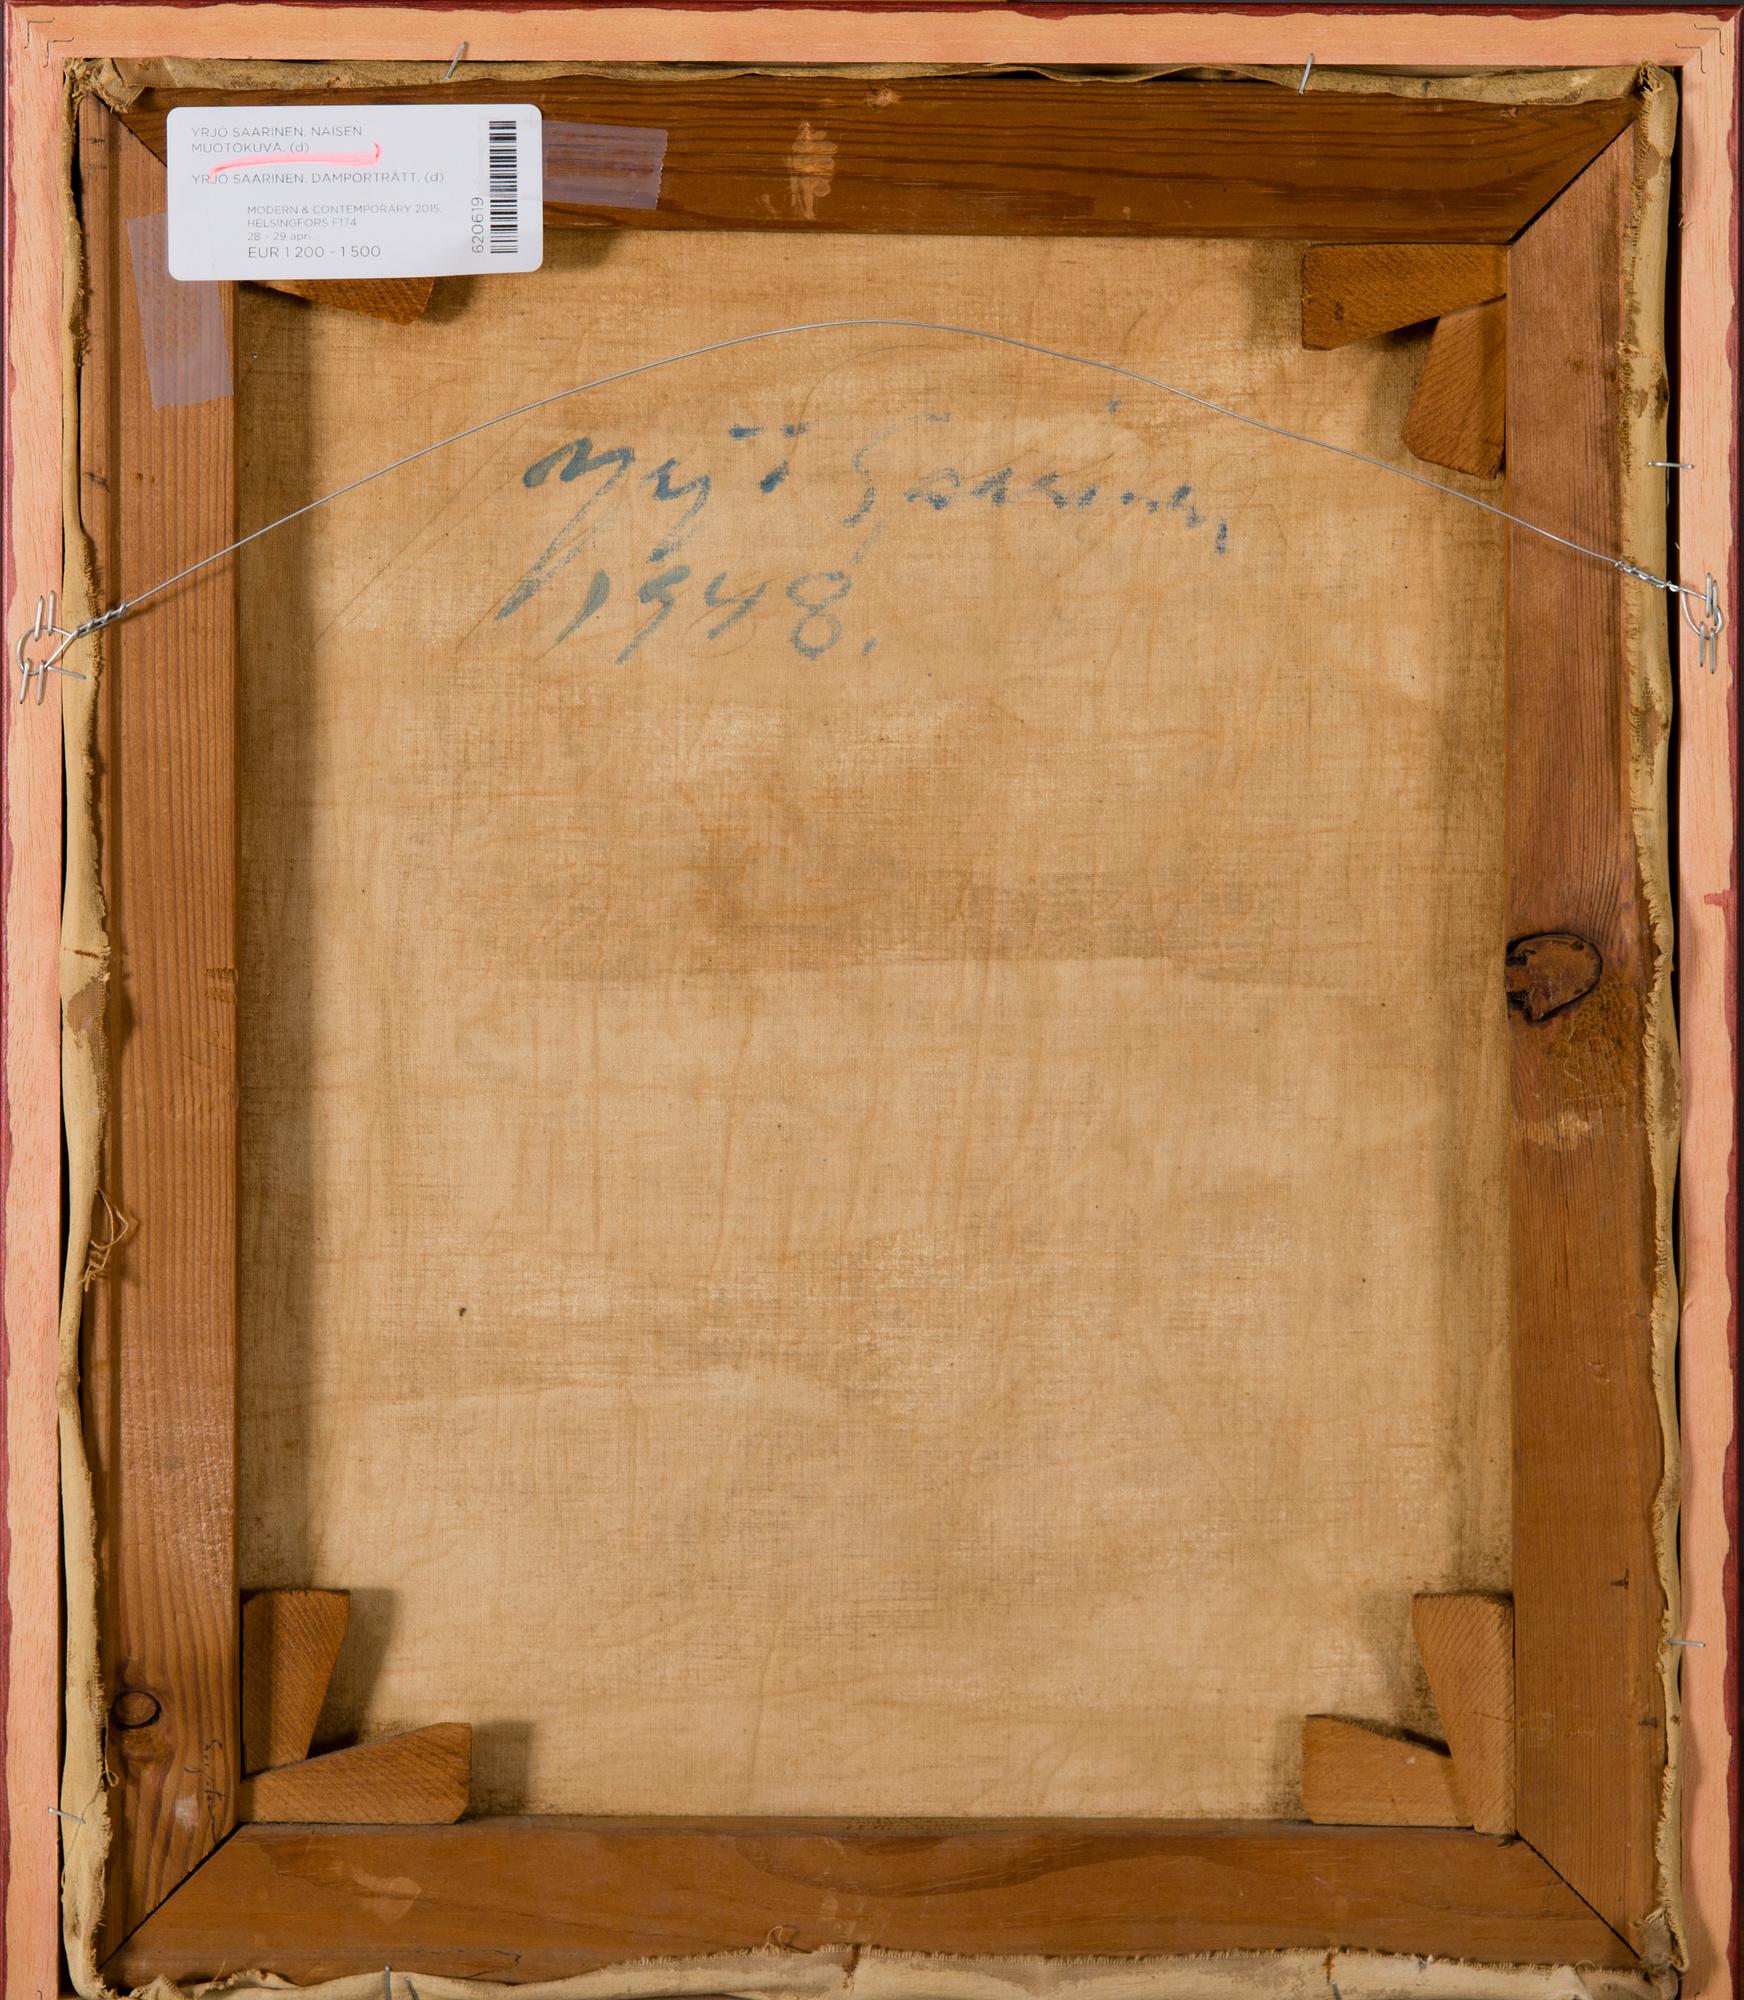 YRJÖ SAARINEN, NAISEN
MUOTOKUVA. (d)
YRJÖ SAARINEN, DAMPORTRÄTT. (d)
MODERN & CONTEMPORARY 2015,
HELSINGFORS F174
28 - 29 apri...
EUR 1 200 - 1 500
620619
Yrjö Saarinen,
1948.